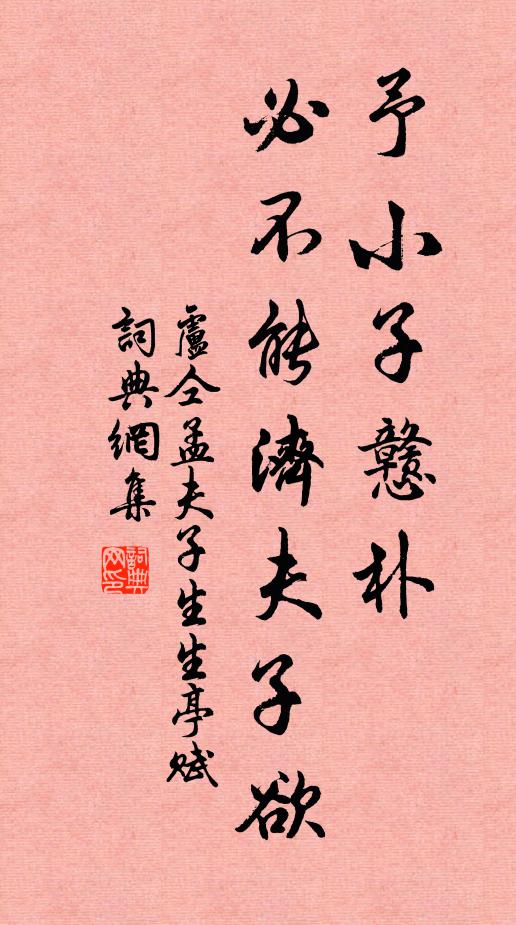 予小子戇朴
必不能濟夫子欲
盧仝孟夫子生生亭賦
詞典網集
詞典網印